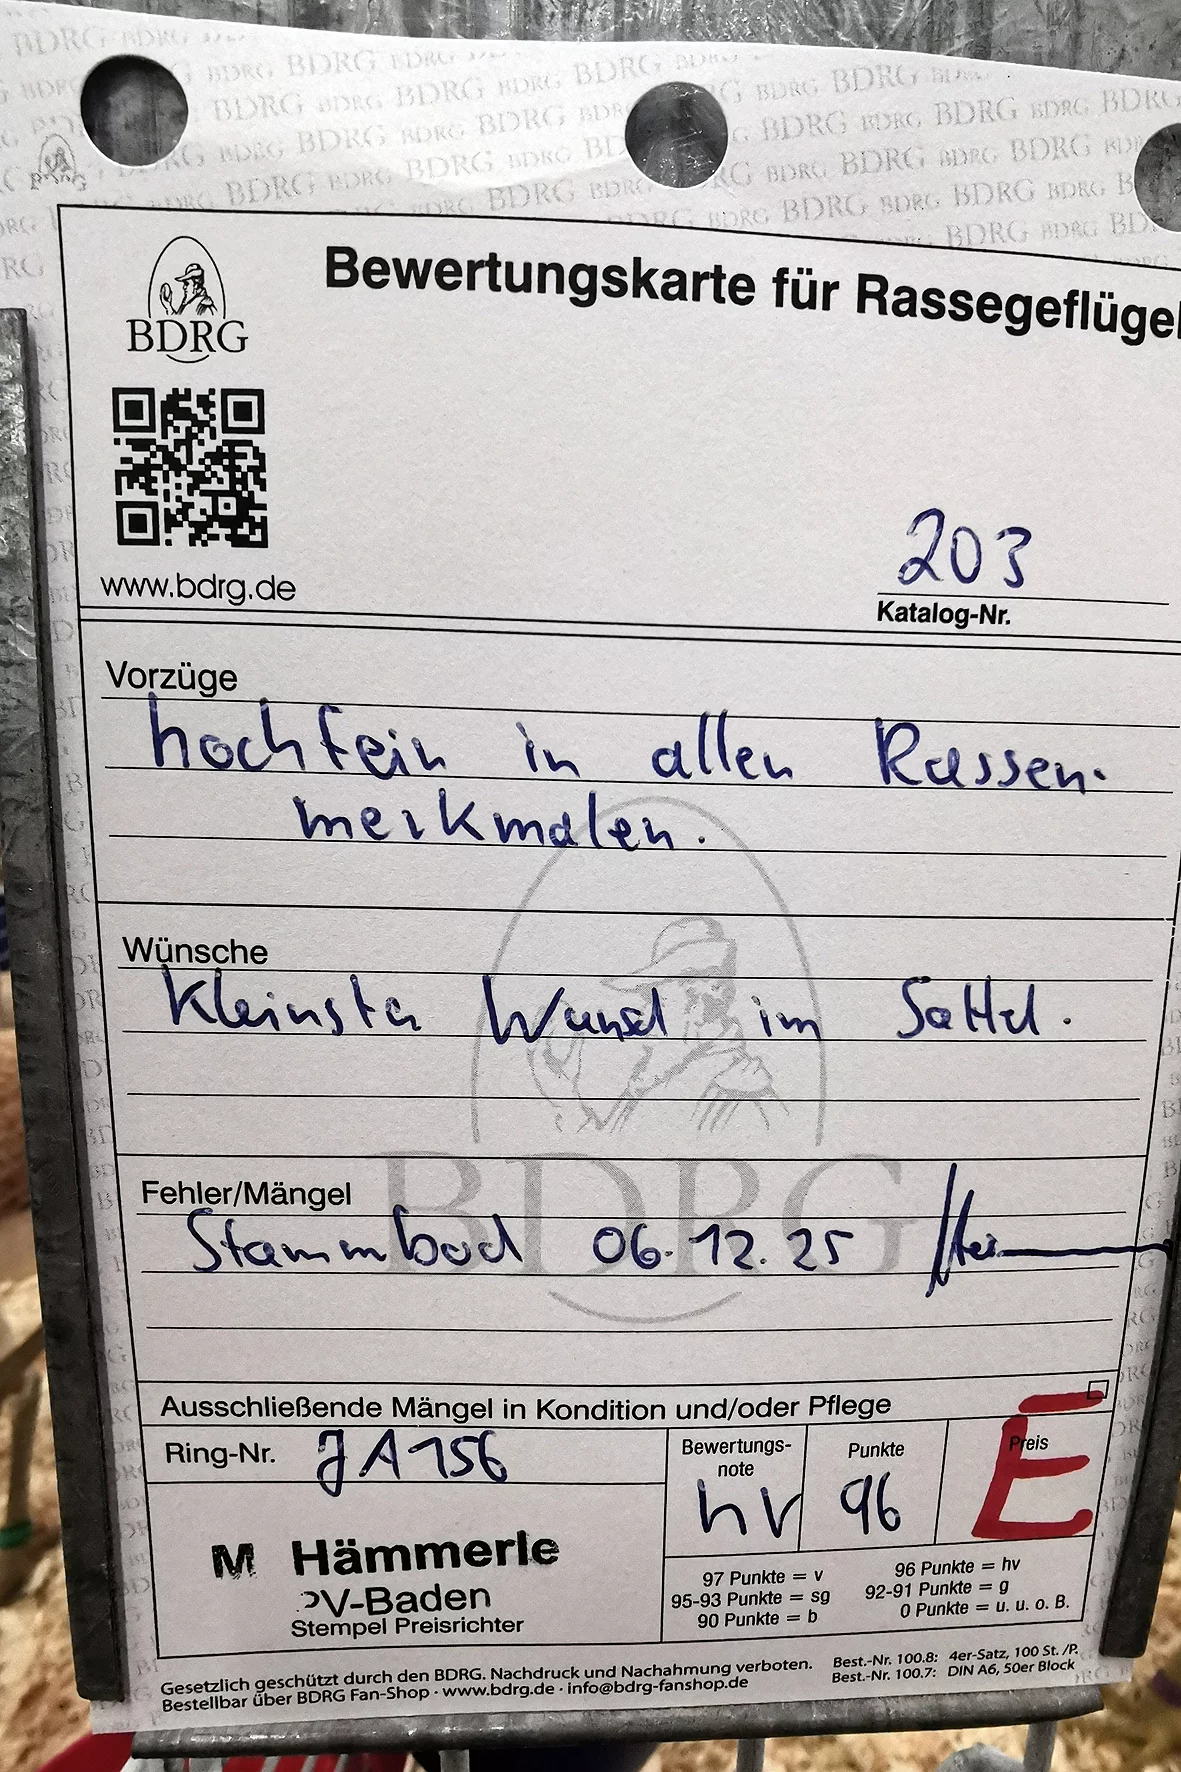 BDRG
Bewertungskarte für Rassegeflügel
www.bdrg.de
203
Katalog-Nr.
Vorzüge
hochfein in allen Rassen-
merkmalen.
Wünsche
Kleinster Wunsch im Sattel.
Fehler/Mängel
06.12.25
BDRG
Ausschließende Mängel in Kondition und/oder Pflege
Ring-Nr. JA 156
Bewertungs-
note
hv
Punkte
96
Preis
E
M Hämmerle
PV-Baden
Stempel Preisrichter
97 Punkte = v
96 Punkte = hv
95-93 Punkte = sg
92-91 Punkte = g
90 Punkte = b
0 Punkte = u. u. o. B.
Gesetzlich geschützt durch den BDRG. Nachdruck und Nachahmung verboten.
Bestellbar über BDRG Fan-Shop · www.bdrg.de · info@bdrg-fanshop.de
Best.-Nr. 100.8: 4er-Satz, 100 St./P.
Best.-Nr. 100.7: DIN A6, 50er Block